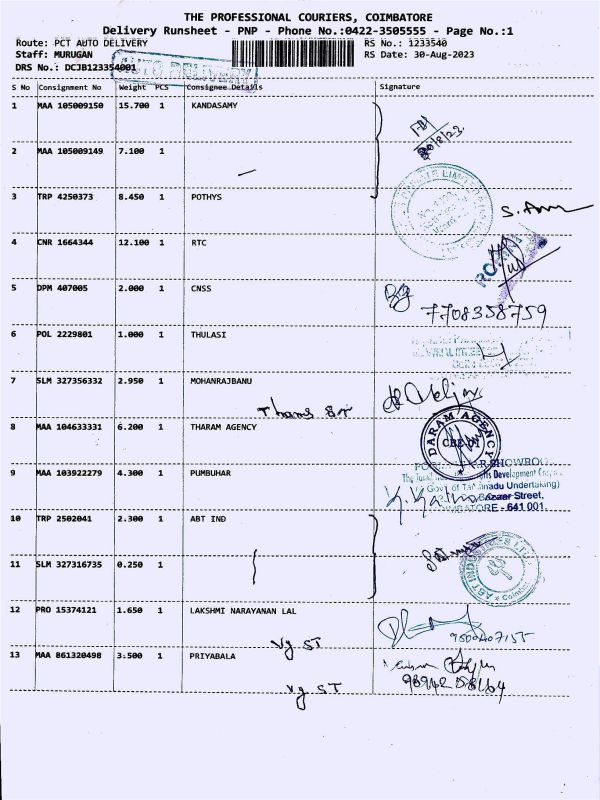 THE PROFESSIONAL COURIERS, COIMBATORE
Delivery Runsheet - PNP - Phone No.:0422-3505555 - Page No.:1
Route: PCT AUTO DELIVERY RS No.: 1233540
Staff: MURUGAN RS Date: 30-Aug-2023
DRS No.: DCJB123354001
AUTO DELIVERY
S No Consignment No Weight PCS Consignee Details Signature
1 MAA 105009150 15.700 1 KANDASAMY
30/8/23
2 MAA 105009149 7.100 1
3 TRP 4250373 8.450 1 POTHYS
4 CNR 1664344 12.100 1 RTC
5 DPM 407005 2.000 1 CNSS
7708358759
6 POL 2229801 1.000 1 THULASI
7 SLM 327356332 2.950 1 MOHANRAJBANU
8 MAA 104633331 6.200 1 THARAM AGENCY
DARAM AGENCY
CBE-01
9 MAA 103922279 4.300 1 PUMBUHAR
Development
Govt of Tamilnadu Undertaking)
Street,
COIMBATORE - 641 001.
10 TRP 2502041 2.300 1 ABT IND
11 SLM 327316735 0.250 1
ABT INDUSTRIES LTD
12 PRO 15374121 1.650 1 LAKSHMI NARAYANAN LAL
Vg ST
13 MAA 861320498 3.500 1 PRIYABALA
Vg ST